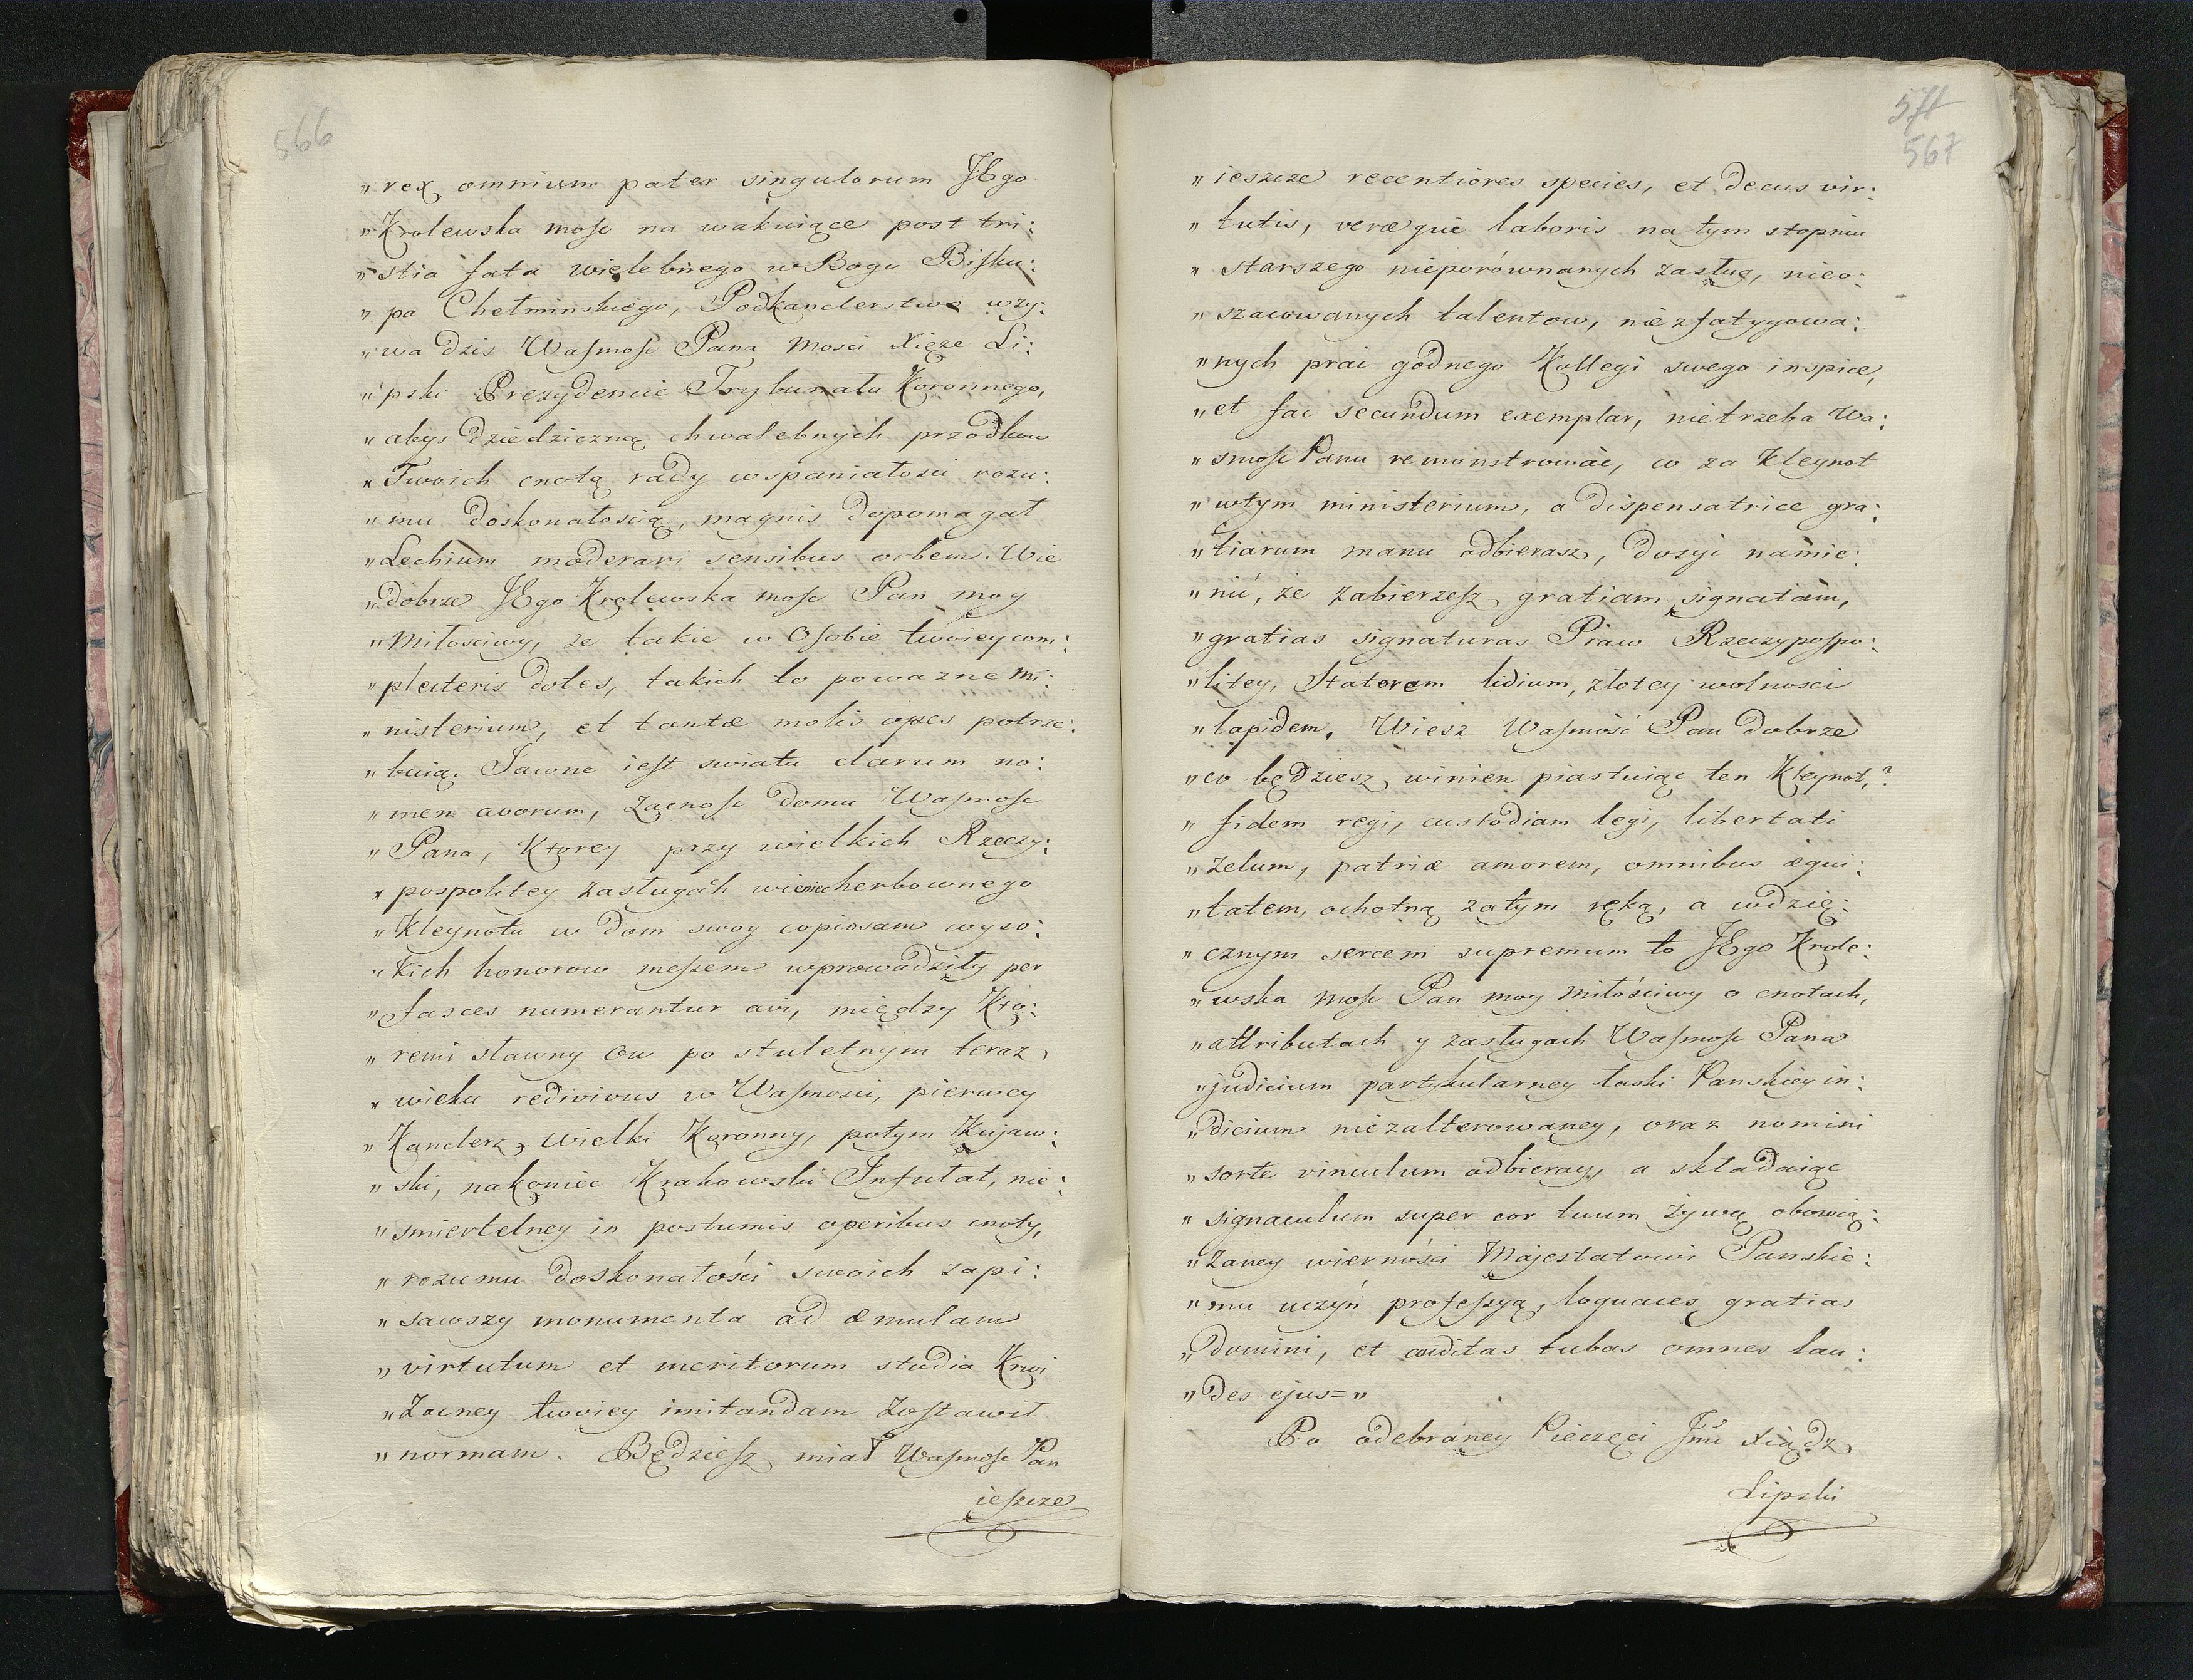 566
„ rex omnium pater singulorum JEgo
„ Krolewska mosc na wakuiące post tri:
„ stia fata wielebnego w Bogu Bisku:
„ pa Chełminskiego, Podkanclerstwo wzy:
„ wa dzis Wasmosc Pana Mosci Xięże Li:
„ pski Prezydencie Trybunału Koronnego,
„ abys dziedziczną chwalebnych przodkow
„ Twoich cnotą rady wspaniałosci rozu:
„ mu doskonałoscią, magnis dopomagał
„ Lechium moderari sensibus orbem. Wie
„ dobrze JEgo Krolewska mosc Pan moy
„ Miłosciwy, ze takie w Osobie twoiey com:
„ plecteris dotes, takich to powazne Mi:
„ nisterium, et tantæ molis opes potrze:
„ buią. Jawne iest swiatu clarum no:
„ men avorum, Zacnosc Domu Wasmosc
„ Pana, Ktorey przy wielkich Rzeczy:
„ pospolitey zasługach wieniec herbownego
„ Kleynotu w Dom swoy copiosam wyso:
„ kich honorow messem wprowadziły per
„ fasces numerantur avi, między Kto:
„ remi sławny ow po stuletnym teraz
„ wieku redivivus w Wasmosci, pierwey
„ Kanclerz Wielki Koronny, potym Kujaw:
„ ski, nakoniec Krakowski Infułat, nie:
„ smiertelney in postumis operibus cnoty,
„ rozumu doskonałości swoich zapi:
„ sawszy monumenta ad æmulam
„ virtutum et meritorum studia Krwi
„ Zacney twoiey imitandam Zostawił
„ normam. Będziesz miał Wasmosc Pan
ieszcze
571
567
„ ieszcze recentiores species, et decus vir:
„ tutis, veræque laboris na tym stopniu
„ starszego nieporównanych zasług, nieo:
„ szacowanych talentow, nie zfatygowa:
„ nych prac godnego Kollegi swego inspice,
„ et fac secundum exemplar, nietrzeba Wa:
„ smosc Panu remonstrować, co za Kleynot
„ wtym ministerium, a dispensatrice gra:
„ tiarum manu odbierasz, dosyć namie:
„ nić, że zabierzesz gratiam signatam,
„ gratias signaturas Praw Rzeczypospo:
„ litey, Statorem lidium, złotey wolnosci
„ lapidem. Wiesz Wasmość Pan Dobrze
„ co będziesz winien piastuiąc ten Kleynot,?
„ fidem regi, custodiam legi, libertati
„ zelum, patriæ amorem, omnibus æqui:
„ tatem, ochotną zatym ręką, a wdzię:
„ cznym sercem supremum to JEgo Krole:
„ wska Mosc Pan moy Miłościwy o cnotach,
„ attributach y zasługach Wasmosc Pana
„ judicium partykularney łaski Panskiey in:
„ dicium niezalterowaney, oraz nomini
„ sorte vinculum odbieray, a składaiąc
„ signaculum super cor tuum żywą obowią:
„ Zaney wierności Majestatowi Panskie:
„ mu uczyń professyą, loquaces gratias
„ Domini, et auditas tubas omnes lau:
„ des ejus=„
Po odebraney Pieczęci Jmć Xiądz
Lipski